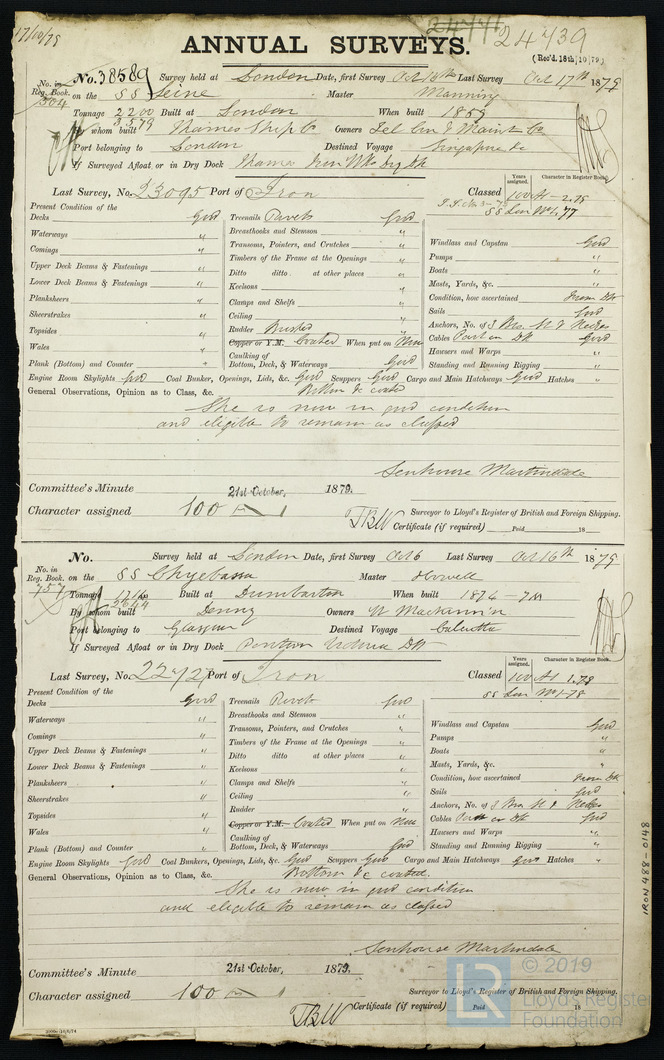 17/10/79
24739
ANNUAL SURVEYS.
(Rec'd. 18th, 10 79)
No. in Reg. Book. 504
No. 38589 Survey held at London Date, first Survey Oct 14th Last Survey Oct 17th 1879
on the SS Seine Master Manning
Tonnage 2200 3579 Built at London When built 1859
By whom built Thames Ship Co Owners Tel Con & Maint Co
Port belonging to London Destined Voyage Singapore &c
If Surveyed Afloat or in Dry Dock Thames Iron Wks Dry Dk
Years assigned. Character in Register Book.
Last Survey, No. 23095 Port of Iron Classed 100 A1 - 2.78
SS Lon No 1.77
Present Condition of the
Decks Good
Waterways "
Comings "
Upper Deck Beams & Fastenings "
Lower Deck Beams & Fastenings "
Planksheers "
Sheerstrakes "
Topsides "
Wales "
Plank (Bottom) and Counter "
Treenails Rivets Good
Breasthooks and Stemson "
Transoms, Pointers, and Crutches "
Timbers of the Frame at the Openings "
Ditto ditto at other places "
Keelsons "
Clamps and Shelfs "
Ceiling "
Rudder Busted "
Copper or Y.M. Coated When put on Now
Caulking of Bottom, Deck, & Waterways Good
Windlass and Capstan Good
Pumps "
Boats "
Masts, Yards, &c. "
Condition, how ascertained From Dk
Sails Good
Anchors, No. of 3 Brs. St & Kedges
Cables Part on Dk Good
Hawsers and Warps "
Standing and Running Rigging "
Engine Room Skylights Good Coal Bunker, Openings, Lids, &c. Good Scuppers Good Cargo and Main Hatchways Good Hatches "
General Observations, Opinion as to Class, &c. Bottom &c coated
She is now in good condition
and eligible to remain as classed
Senhouse Martindale
Committee's Minute 21st October, 1879.
Character assigned 100 A 1
TBW
Surveyor to Lloyd's Register of British and Foreign Shipping.
Certificate (if required) Paid 18
No. in Reg. Book. 757
No. Survey held at London Date, first Survey Oct 6 Last Survey Oct 16th 1879
on the SS Chyebassa Master Howell
Tonnage 2644 Built at Dumbarton When built 1874 - 7m
By whom built Denny Owners W Mackinnon
Port belonging to Glasgow Destined Voyage Calcutta
If Surveyed Afloat or in Dry Dock Pontoon Victoria Dk
Years assigned. Character in Register Book.
Last Survey, No. 22727 Port of Iron Classed 100 A1 1.78
SS Lon No 1-78
Present Condition of the
Decks Good
Waterways "
Comings "
Upper Deck Beams & Fastenings "
Lower Deck Beams & Fastenings "
Planksheers "
Sheerstrakes "
Topsides "
Wales "
Plank (Bottom) and Counter "
Treenails Rivets Good
Breasthooks and Stemson "
Transoms, Pointers, and Crutches "
Timbers of the Frame at the Openings "
Ditto ditto at other places "
Keelsons "
Clamps and Shelfs "
Ceiling "
Rudder "
Copper or Y.M. Coated When put on Now
Caulking of Bottom, Deck, & Waterways Good
Windlass and Capstan Good
Pumps "
Boats "
Masts, Yards, &c. "
Condition, how ascertained From Dk
Sails Good
Anchors, No. of 3 Brs St & Kedges
Cables Part on Dk Good
Hawsers and Warps "
Standing and Running Rigging "
Engine Room Skylights Good Coal Bunkers, Openings, Lids, &c. Good Scuppers Good Cargo and Main Hatchways Good Hatches "
General Observations, Opinion as to Class, &c. Bottom &c coated.
She is now in good condition
and eligible to remain as classed
Senhouse Martindale
Committee's Minute 21st October, 1879.
Character assigned 100 A 1
TBW
Surveyor to Lloyd's Register of British and Foreign Shipping.
Certificate (if required) Paid 18
IRON 488-0148
LR © 2019 Lloyd's Register Foundation